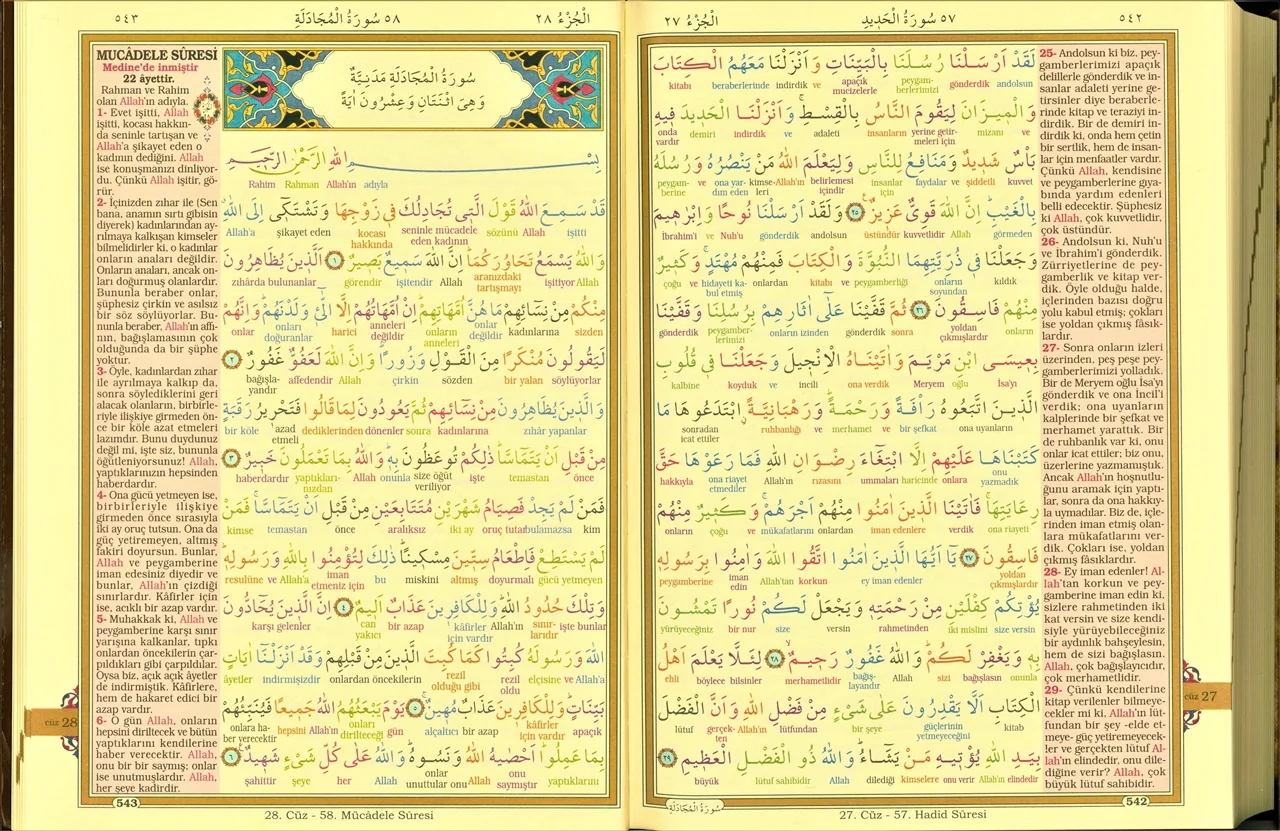 ٥٤٢
٥٧ سُورَةُ الْحَدِيدِ
الْجُزْءُ ٢٧
لَقَدْ اَرْسَلْنَا رُسُلَنَا بِالْبَيِّنَاتِ وَاَنْزَلْنَا مَعَهُمُ الْكِتَابَ
kitabı beraberlerinde indirdik ve apaçık mucizelerle peygamberlerimizi gönderdik andolsun
وَالْمِيزَانَ لِيَقُومَ النَّاسُ بِالْقِسْطِۚ وَاَنْزَلْنَا الْحَدِيدَ فِيهِ
onda vardır demiri indirdik ve adaleti insanların yerine getirmeleri için mizanı ve
بَأْسٌ شَدِيدٌ وَمَنَافِعُ لِلنَّاسِ وَلِيَعْلَمَ اللّٰهُ مَنْ يَنْصُرُهُ وَرُسُلَهُ
peygamberine ve ona yardım eden kimseleri Allah'ın belirlemesi içindir insanlar için faydalar ve şiddetli kuvvet
بِالْغَيْبِۜ اِنَّ اللّٰهَ قَوِىٌّ عَزِيزٌ ﴿٢٥﴾ وَلَقَدْ اَرْسَلْنَا نُوحًا وَاِبْرٰهِيمَ
İbrahim'i ve Nuh'u gönderdik andolsun üstündür kuvvetlidir Allah görmeden
وَجَعَلْنَا فِى ذُرِّيَّتِهِمَا النُّبُوَّةَ وَالْكِتَابَ فَمِنْهُمْ مُهْتَدٍۚ وَكَثِيرٌ
çoğu ve hidayeti kabul etmiş onlardan kitabı ve peygamberliği onların soyundan kıldık
مِنْهُمْ فَاسِقُونَ ﴿٢٦﴾ ثُمَّ قَفَّيْنَا عَلٰٓى اٰثَارِهِمْ بِرُسُلِنَا وَقَفَّيْنَا
gönderdik peygamberlerimizi onların izinden gönderdik sonra yoldan çıkmışlardır onların
بِعِيسَى ابْنِ مَرْيَمَ وَاٰتَيْنَاهُ الْاِنْجِيلَ وَجَعَلْنَا فِى قُلُوبِ
kalbine koyduk ve incili ona verdik Meryem oğlu İsa'yı
الَّذِينَ اتَّبَعُوهُ رَاْفَةً وَرَحْمَةًۜ وَرَهْبَانِيَّةًۨ ابْتَدَعُوهَا مَا
sonradan icat ettiler ruhbanlığı ve merhamet ve bir şefkat ona uyanların
كَتَبْنَاهَا عَلَيْهِمْ اِلَّا ابْتِغَٓاءَ رِضْوَانِ اللّٰهِ فَمَا رَعَوْهَا حَقَّ
hakkıyla ona riayet etmediler Allah'ın rızasını ummaları haricinde onlara onu yazmadık
رِعَايَتِهَاۚ فَاٰتَيْنَا الَّذِينَ اٰمَنُوا مِنْهُمْ اَجْرَهُمْۚ وَكَثِيرٌ مِنْهُمْ
onların çoğu ve mükafatlarını onlardan iman edenlere verdik ona riayeti
فَاسِقُونَ ﴿٢٧﴾ يَٓا اَيُّهَا الَّذِينَ اٰمَنُوا اتَّقُوا اللّٰهَ وَاٰمِنُوا بِرَسُولِهِ
peygamberine iman edin Allah'tan korkun ey iman edenler yoldan çıkmışlardır
يُؤْتِكُمْ كِفْلَيْنِ مِنْ رَحْمَتِهِ وَيَجْعَلْ لَكُمْ نُورًا تَمْشُونَ
yürüyeceğiniz bir nur size versin rahmetinden iki mislini size versin
بِهِ وَيَغْفِرْ لَكُمْۜ وَاللّٰهُ غَفُورٌ رَحِيمٌۙ ﴿٢٨﴾ لِئَلَّا يَعْلَمَ اَهْلُ
ehli böylece bilsinler merhametlidir bağışlayandır Allah sizi bağışlasın onunla
الْكِتَابِ اَلَّا يَقْدِرُونَ عَلٰى شَىْءٍ مِنْ فَضْلِ اللّٰهِ وَاَنَّ الْفَضْلَ
lütuf gerçekten Allah'ın lütfundan bir şeye güçlerinin yetmeyeceğini kitab
بِيَدِ اللّٰهِ يُؤْتِيهِ مَنْ يَشَٓاءُۜ وَاللّٰهُ ذُو الْفَضْلِ الْعَظِيمِ ﴿٢٩﴾
büyük lütuf sahibidir Allah dilediği kimselere onu verir Allah'ın elindedir
25- Andolsun ki biz, pey-
gamberlerimizi apaçık
delillerle gönderdik ve in-
sanlar adaleti yerine ge-
tirsinler diye beraberle-
rinde kitap ve teraziyi in-
dirdik. Bir de demiri in-
dirdik ki, onda hem çetin
bir sertlik, hem de insan-
lar için menfaatler vardır.
Çünkü Allah, kendisine
ve peygamberlerine gıya-
bında yardım edenleri
belli edecektir. Şüphesiz
ki Allah, çok kuvvetlidir,
çok üstündür.
26- Andolsun ki, Nuh'u
ve İbrahim'i gönderdik.
Zürriyetlerine de pey-
gamberlik ve kitap ver-
dik. Öyle olduğu halde,
içlerinden bazısı doğru
yolu kabul etmiş; çokları
ise yoldan çıkmış fâsık-
lardır.
27- Sonra onların izleri
üzerinden, peş peşe pey-
gamberlerimizi yolladık.
Bir de Meryem oğlu İsa'yı
gönderdik ve ona İncil'i
verdik; ona uyanların
kalplerinde bir şefkat ve
merhamet yarattık. Bir
de ruhbanlık var ki, onu
onlar icat ettiler; biz onu,
üzerlerine yazmamıştık.
Ancak Allah'ın hoşnutlu-
ğunu aramak için yaptı-
lar, sonra da ona hakkıy-
la uymadılar. Biz de, içle-
rinden iman etmiş olan-
lara mükâfatlarını ver-
dik. Çokları ise, yoldan
çıkmış fâsıklardır.
28- Ey iman edenler! Al-
lah'tan korkun ve pey-
gamberine iman edin ki,
sizlere rahmetinden iki
kat versin ve size kendi-
siyle yürüyebileceğiniz
bir aydınlık bahşeylesin,
hem de sizi bağışlasın.
Allah, çok bağışlayıcıdır,
çok merhametlidir.
29- Çünkü kendilerine
kitap verilenler bilmeye-
cekler mi ki, Allah'ın lüt-
fundan bir şey -elde et-
meye- güç yetiremezler
ve gerçekten lütuf Al-
lah'ın elindedir, onu dile-
diğine verir? Allah, çok
büyük lütuf sahibidir.
cüz 27
542
سُورَةُ الْمُجَادَلَةِ
27. Cüz - 57. Hadid Sûresi
الْجُزْءُ ٢٨
٥٨ سُورَةُ الْمُجَادَلَةِ
٥٤٣
سُورَةُ الْمُجَادَلَةِ مَدَنِيَّةٌ
وَهِىَ اثْنَتَانِ وَعِشْرُونَ اٰيَةً
بِسْمِ اللّٰهِ الرَّحْمٰنِ الرَّحِيمِ
Rahim Rahman Allah'ın adıyla
قَدْ سَمِعَ اللّٰهُ قَوْلَ الَّتِى تُجَادِلُكَ فِى زَوْجِهَا وَتَشْتَكِٓى اِلَى اللّٰهِۗ
Allah'a şikayet eden kocası hakkında seninle mücadele eden kadının sözünü Allah işitti
وَاللّٰهُ يَسْمَعُ تَحَاوُرَكُمَاۜ اِنَّ اللّٰهَ سَمِيعٌ بَصِيرٌ ﴿١﴾ اَلَّذِينَ يُظَاهِرُونَ
zıhârda bulunanlar görendir işitendir Allah aranızdaki tartışmayı işitiyor Allah
مِنْكُمْ مِنْ نِسَٓائِهِمْ مَا هُنَّ اُمَّهَاتِهِمْۜ اِنْ اُمَّهَاتُهُمْ اِلَّا الّٰٓـِٔى وَلَدْنَهُمْۜ وَاِنَّهُمْ
onlar onları doğuranlar harici anneleri değildir onların anneleri onlar değildir kadınlarına sizden
لَيَقُولُونَ مُنْكَرًا مِنَ الْقَوْلِ وَزُورًاۜ وَاِنَّ اللّٰهَ لَعَفُوٌّ غَفُورٌ ﴿٢﴾
bağışlayandır affedendir Allah çirkin sözden bir yalan söylüyorlar
وَالَّذِينَ يُظَاهِرُونَ مِنْ نِسَٓائِهِمْ ثُمَّ يَعُودُونَ لِمَا قَالُوا فَتَحْرِيرُ رَقَبَةٍ
bir köle azad etmeli dediklerinden dönenler sonra kadınlarına zıhâr yapanlar
مِنْ قَبْلِ اَنْ يَتَمَٓاسَّاۜ ذٰلِكُمْ تُوعَظُونَ بِهِۜ وَاللّٰهُ بِمَا تَعْمَلُونَ خَبِيرٌ ﴿٣﴾
haberdardır yaptıklarınızdan Allah onunla size öğüt veriliyor işte temastan önce
فَمَنْ لَمْ يَجِدْ فَصِيَامُ شَهْرَيْنِ مُتَتَابِعَيْنِ مِنْ قَبْلِ اَنْ يَتَمَٓاسَّاۚ فَمَنْ
kimse temastan önce aralıksız iki ay oruç tutar bulamazsa kim
لَمْ يَسْتَطِعْ فَاِطْعَامُ سِتِّينَ مِسْكِينًاۜ ذٰلِكَ لِتُؤْمِنُوا بِاللّٰهِ وَرَسُولِهِۜ
resulüne ve Allah'a iman etmeniz için bu miskini altmış doyurmalı gücü yetmeyen
وَتِلْكَ حُدُودُ اللّٰهِۜ وَلِلْكَافِرِينَ عَذَابٌ اَلِيمٌ ﴿٤﴾ اِنَّ الَّذِينَ يُحَٓادُّونَ
karşı gelenler can yakıcı bir azap kâfirler için vardır Allah'ın sınırlarıdır işte bunlar
اللّٰهَ وَرَسُولَهُ كُبِتُوا كَمَا كُبِتَ الَّذِينَ مِنْ قَبْلِهِمْ وَقَدْ اَنْزَلْنَٓا اٰيَاتٍ
âyetler indirmişizdir onlardan öncekilerin rezil olduğu gibi rezil oldu elçisine ve Allah'a
بَيِّنَاتٍۜ وَلِلْكَافِرِينَ عَذَابٌ مُهِينٌۚ ﴿٥﴾ يَوْمَ يَبْعَثُهُمُ اللّٰهُ جَمِيعًا فَيُنَبِّئُهُمْ
onlara haber verecektir hepsini Allah'ın onları dirilteceği gün alçaltıcı bir azap kâfirler için vardır apaçık
بِمَا عَمِلُواۜ اَحْصٰيهُ اللّٰهُ وَنَسُوهُۜ وَاللّٰهُ عَلٰى كُلِّ شَىْءٍ شَهِيدٌ ﴿٦﴾
şahittir şeye her Allah onlar unuttular onu Allah onu saymıştır yaptıklarını
MUCÂDELE SÛRESİ
Medine'de inmiştir
22 âyettir.
Rahman ve Rahim
olan Allah'ın adıyla.
1- Evet işitti, Allah
işitti, kocası hakkın-
da seninle tartışan ve
Allah'a şikayet eden o
kadının dediğini. Allah
ise konuşmanızı dinliyor-
du. Çünkü Allah işitir, gö-
rür.
2- İçinizden zıhar ile (Sen
bana, anamın sırtı gibisin
diyerek) kadınlarından ay-
rılmaya kalkışan kimseler
bilmelidirler ki, o kadınlar
onların anaları değildir.
Onların anaları, ancak on-
ları doğurmuş olanlardır.
Bununla beraber onlar,
şüphesiz çirkin ve asılsız
bir söz söylüyorlar. Bu-
nunla beraber, Allah'ın affı-
nın, bağışlamasının çok
olduğunda da bir şüphe
yoktur.
3- Öyle, kadınlardan zıhar
ile ayrılmaya kalkıp da,
sonra söylediklerini geri
alacak olanların, birbirle-
riyle ilişkiye girmeden ön-
ce bir köle azat etmeleri
lazımdır. Bunu duydunuz
değil mi, işte siz, bununla
öğütleniyorsunuz! Allah,
yaptıklarınızın hepsinden
haberdardır.
4- Ona gücü yetmeyen ise,
birbirleriyle ilişkiye
girmeden önce sırasıyla
iki ay oruç tutsun. Ona da
güç yetiremeyen, altmış
fakiri doyursun. Bunlar,
Allah ve peygamberine
iman edesiniz diyedir ve
bunlar, Allah'ın çizdiği
sınırlardır. Kâfirler için
ise, acıklı bir azap vardır.
5- Muhakkak ki, Allah ve
peygamberine karşı sınır
yarışına kalkanlar, tıpkı
onlardan öncekilerin çar-
pıldıkları gibi çarpıldılar.
Oysa biz, açık açık âyetler
de indirmiştik. Kâfirlere,
hem de hakaret edici bir
azap vardır.
6- O gün Allah, onların
hepsini diriltecek ve bütün
yaptıklarını kendilerine
haber verecektir. Allah,
onu bir bir saymış; onlar
ise unutmuşlardır. Allah,
her şeye kadirdir.
cüz 28
543
28. Cüz - 58. Mücâdele Sûresi